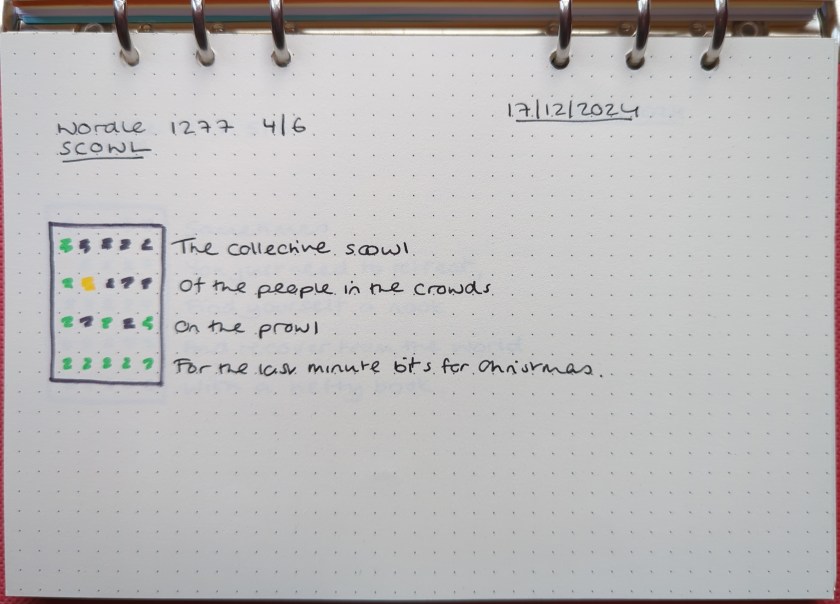 17/12/2024
Wordle 1277 4/6
SCOWL
The collective scowl
Of the people in the crowds
On the prowl
For the last minute bits for Christmas.